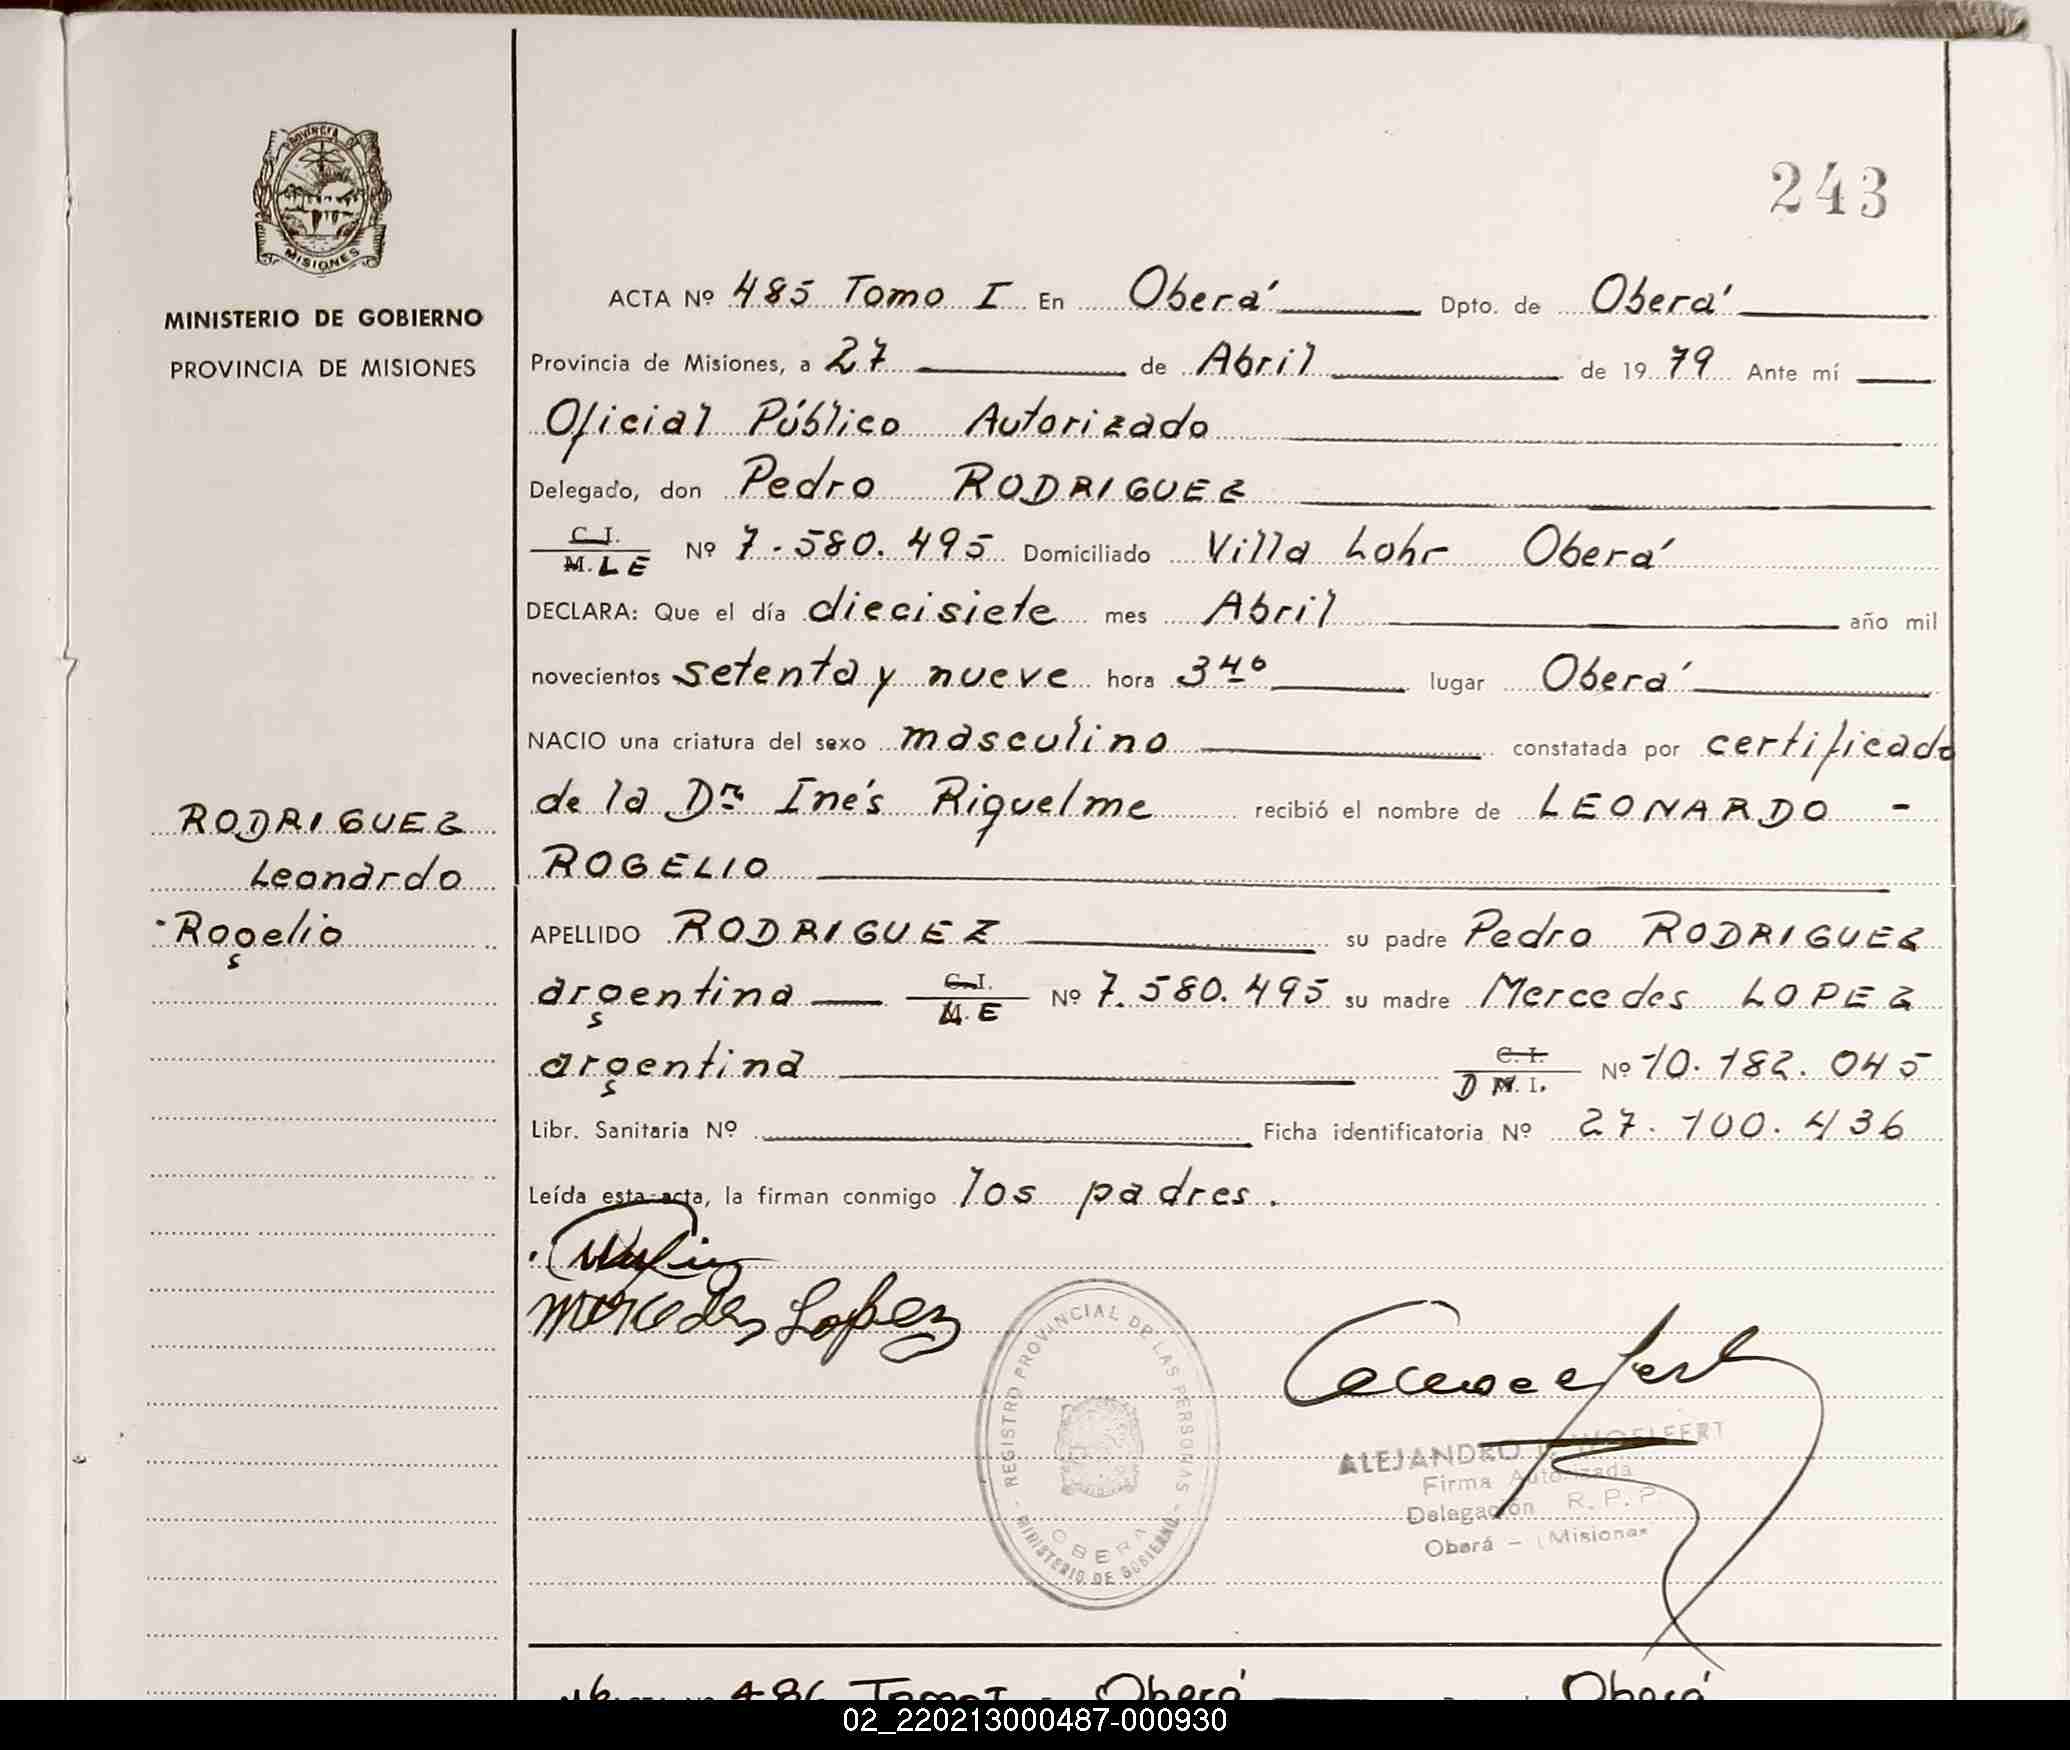 PROVINCIA DE
MISIONES
MINISTERIO DE GOBIERNO
PROVINCIA DE MISIONES
RODRIGUEZ
Leonardo
Rogelio
243
ACTA Nº 485 Tomo I En Oberá Dpto. de Oberá
Provincia de Misiones, a 27 de Abril de 1979 Ante mí
Oficial Público Autorizado
Delegado, don Pedro RODRIGUEZ
C.I.
M.LE Nº 7.580.495 Domiciliado Villa Lohr Oberá
DECLARA: Que el día diecisiete mes Abril año mil
novecientos setenta y nueve hora 3 40 lugar Oberá
NACIO una criatura del sexo masculino constatada por certificado
de la Dra Inés Riquelme recibió el nombre de LEONARDO -
ROGELIO
APELLIDO RODRIGUEZ su padre Pedro RODRIGUEZ
argentina C.I. M.E Nº 7.580.495 su madre Mercedes LOPEZ
argentina C.I. D M.I. Nº 10.182.045
Libr. Sanitaria Nº Ficha identificatoria Nº 27.100.436
Leída esta acta, la firman conmigo los padres.
Mercedes Lopez
REGISTRO PROVINCIAL DE LAS PERSONAS
OBERA
MINISTERIO DE GOBIERNO
ALEJANDRO WOELFERT
Firma Autorizada
Delegación R.P.P.
Oberá - (Misiones
486 Tomo I Oberá Oberá
02_220213000487-000930